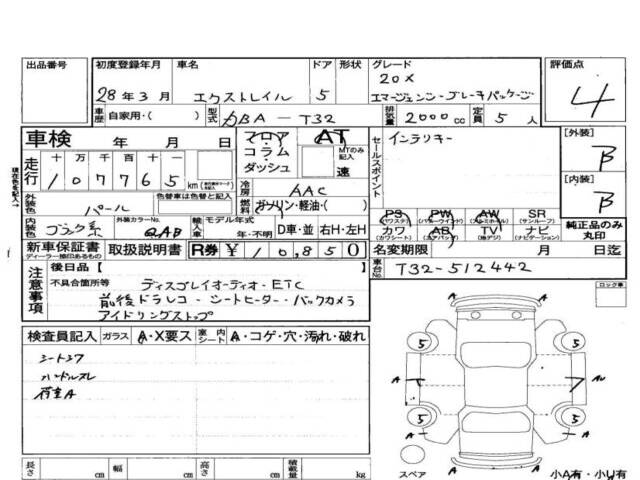 出品番号 初度登録年月 車名 ドア 形状 グレード 評価点
28年3月 エクストレイル 5 20X エマージェンシーブレーキパッケージ 4
車歴 自家用・( ) 型式 DBA-T32 排気量 2000cc 定員 5人
車検 年 月 日 フロア・コラム・ダッシュ AT MTのみ記入 速 セールスポイント インテリキー [外装] B
走行 十万千百十一 107765 km
現在色を記入
外装色 パール 色替車は色替と記入 冷房 AAC 燃料 ガソリン・軽油・( ) [内装] B
内装色 ブラック系 外装カラーNo. QAB 輸入車 モデル年式 年・不明 D車・並 右H・左H
PS (パワステ) PW (パワーウインドウ) AW (アルミホイール) SR (サンルーフ)
カワ (カワシート) AB (エアバッグ) TV (地デジ) ナビ (ナビゲーション) 純正品のみ丸印
新車保証書 ディーラー捺印あるもの 取扱説明書 R券 ¥10,850 名変期限 月 日迄
車台No. T32-512442
注意事項 後日品( )
不具合箇所等 ディスプレイオーディオ・ETC
前後ドラレコ・シートヒーター・バックカメラ
アイドリングストップ
ロック車
検査員記入 ガラス A・X要ス 室内シート A・コゲ・穴・汚れ・破れ
シートスア
ハンドルスレ
荷室A
5 5
A A
5 5
A A
スペア 小A有・小U有
長さ cm 幅 cm 高さ cm 積載量 kg